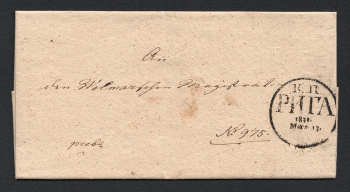 An
den Wolmarschen Magistrat
No 975.
publ.
К. П
РИГА
1871.
Март 17.